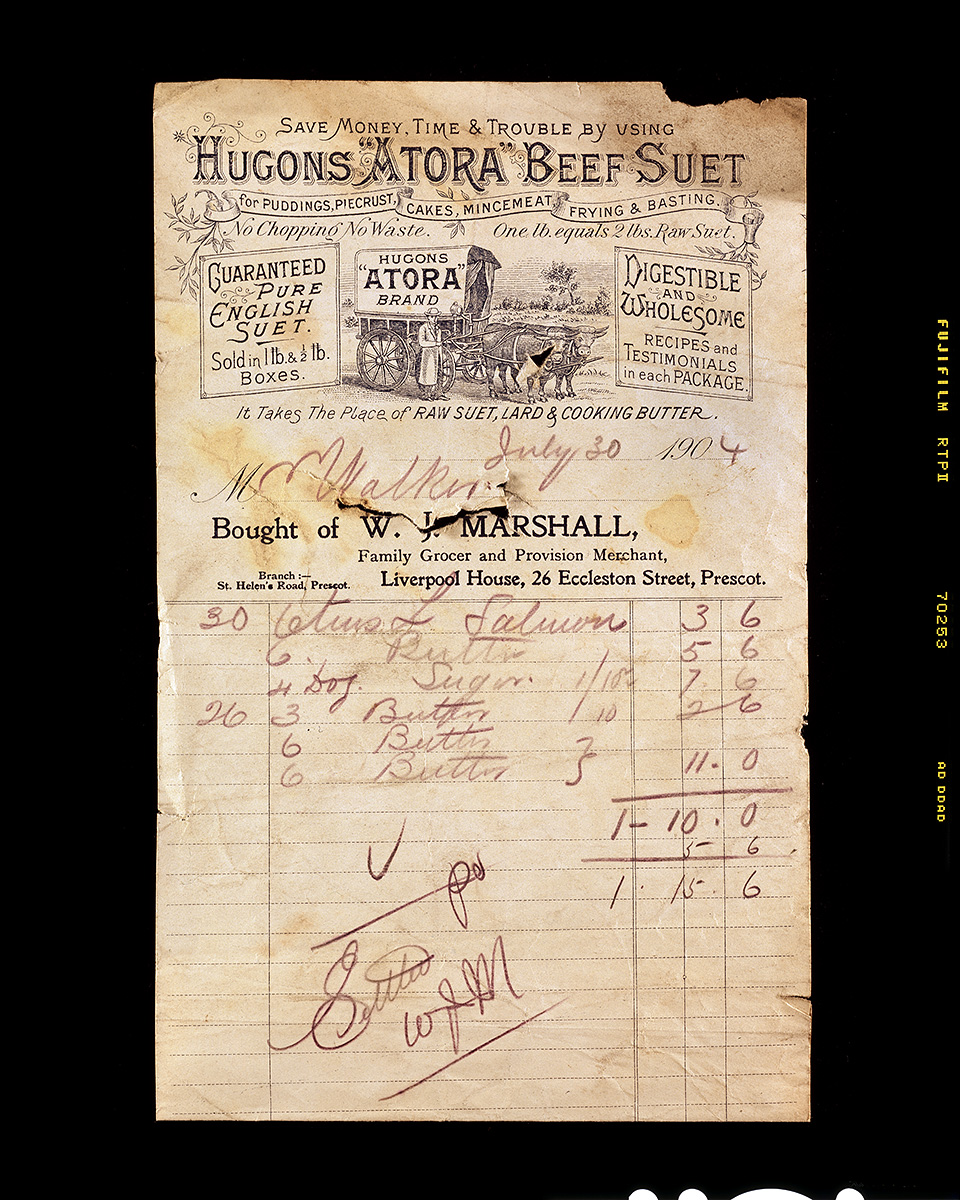 SAVE MONEY, TIME & TROUBLE BY USING
HUGONS "ATORA" BEEF SUET
for PUDDINGS, PIECRUST, CAKES, MINCEMEAT, FRYING & BASTING.
No Chopping No Waste. One lb. equals 2 lbs. Raw Suet.
GUARANTEED
PURE
ENGLISH
SUET.
Sold in 1 lb. & ½ lb.
Boxes.
HUGONS
"ATORA"
BRAND
DIGESTIBLE
AND
WHOLESOME
RECIPES and
TESTIMONIALS
in each PACKAGE.
It Takes The Place of RAW SUET, LARD & COOKING BUTTER.
July 30 1904
Mr Walker
Bought of W. J. MARSHALL,
Family Grocer and Provision Merchant,
Branch :—
St. Helen's Road, Prescot.
Liverpool House, 26 Eccleston Street, Prescot.
30 6 tins L Salmon 3 6
6 Butter 5 6
4 Doz. Sugar 1/10½ 7 6
26 3 Butter /10 2 6
6 Butter }
6 Butter } 11. 0
1 - 10. 0
5 6
1. 15. 6
pd
Settled
WJM
FUJIFILM RTPII
70253
AD DDAD